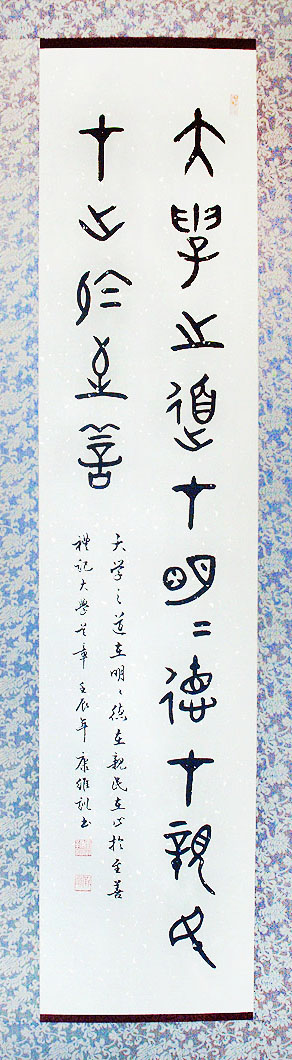 大學之道才明二德才親民
才止於至善
大学之道在明〻德在親民在止於至善
禮記大學首章 壬辰年 康維訓書